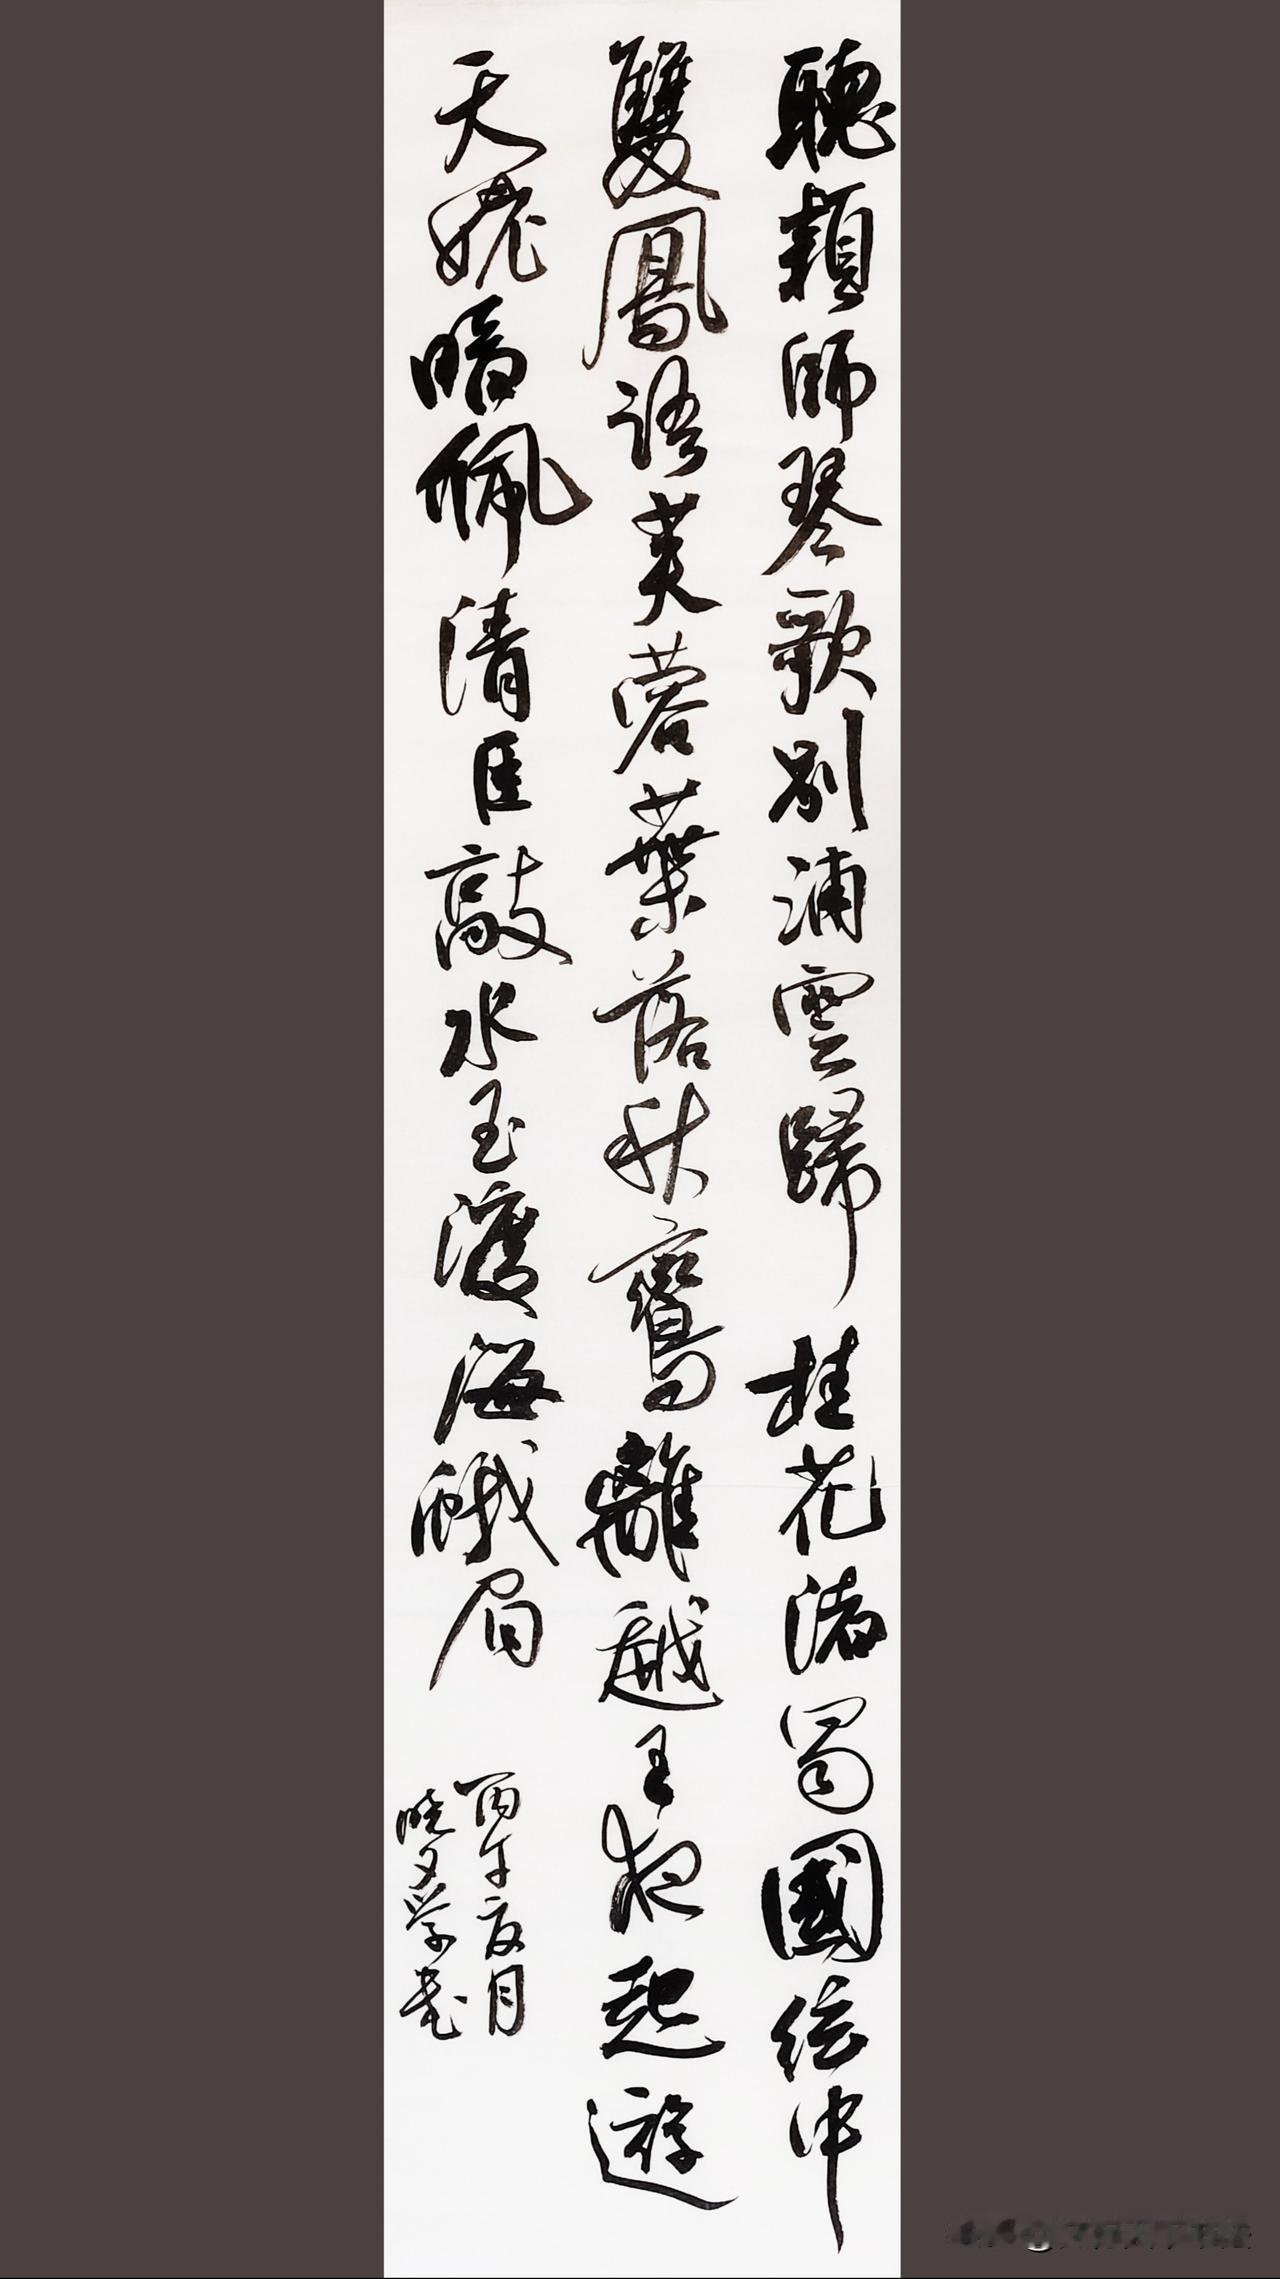 聽穎師琴歌別浦雲歸桂花渚蜀國絃中
雙鳳語芙蓉葉落秋鸞離越王夜起遊
天姥暗佩清臣敲水玉渡海蛾眉
丙午夏月
曉文學書